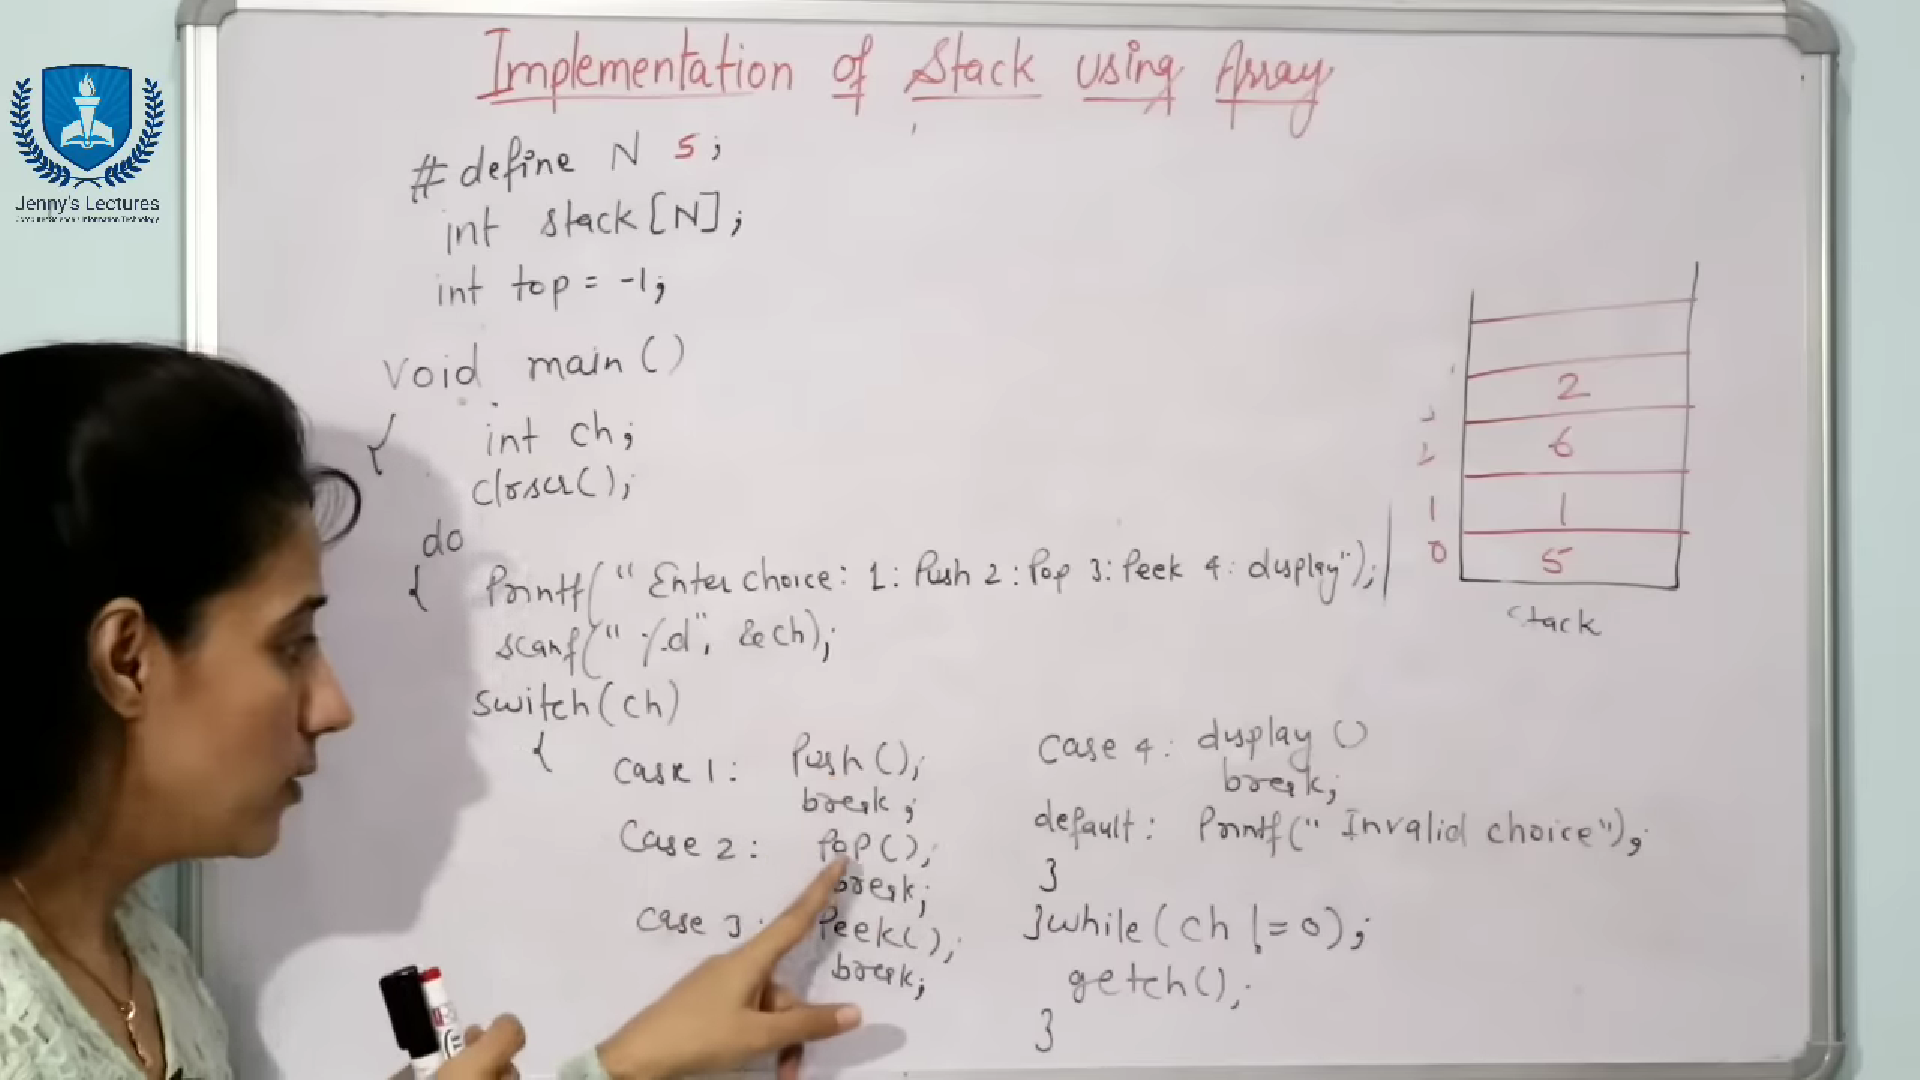 Jenny's Lectures
Implementation of Stack using Array
#define N 5;
int stack[N];
int top = -1;
void main()
{ int ch;
closcr();
do
{ Printf("Enter choice: 1: Push 2: Pop 3: Peek 4: display");
scanf("%d", &ch);
switch(ch)
{
Case 1: Push();
break;
Case 2: Pop();
break;
Case 3: Peek();
break;
Case 4: display()
break;
default: Printf("Invalid choice");
}
}while(ch != 0);
getch();
}
2
6
1 1
0 5
stack